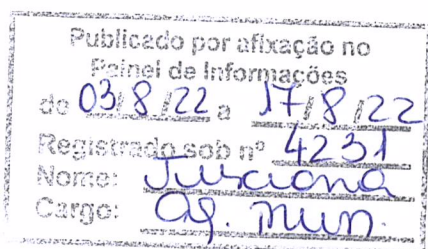 Publicado por afixação no
Painel de Informações
de 03/8/22 a 17/8/22
Registrado sob nº 4231
Nome: Jusciana
Cargo: Ag. mun.